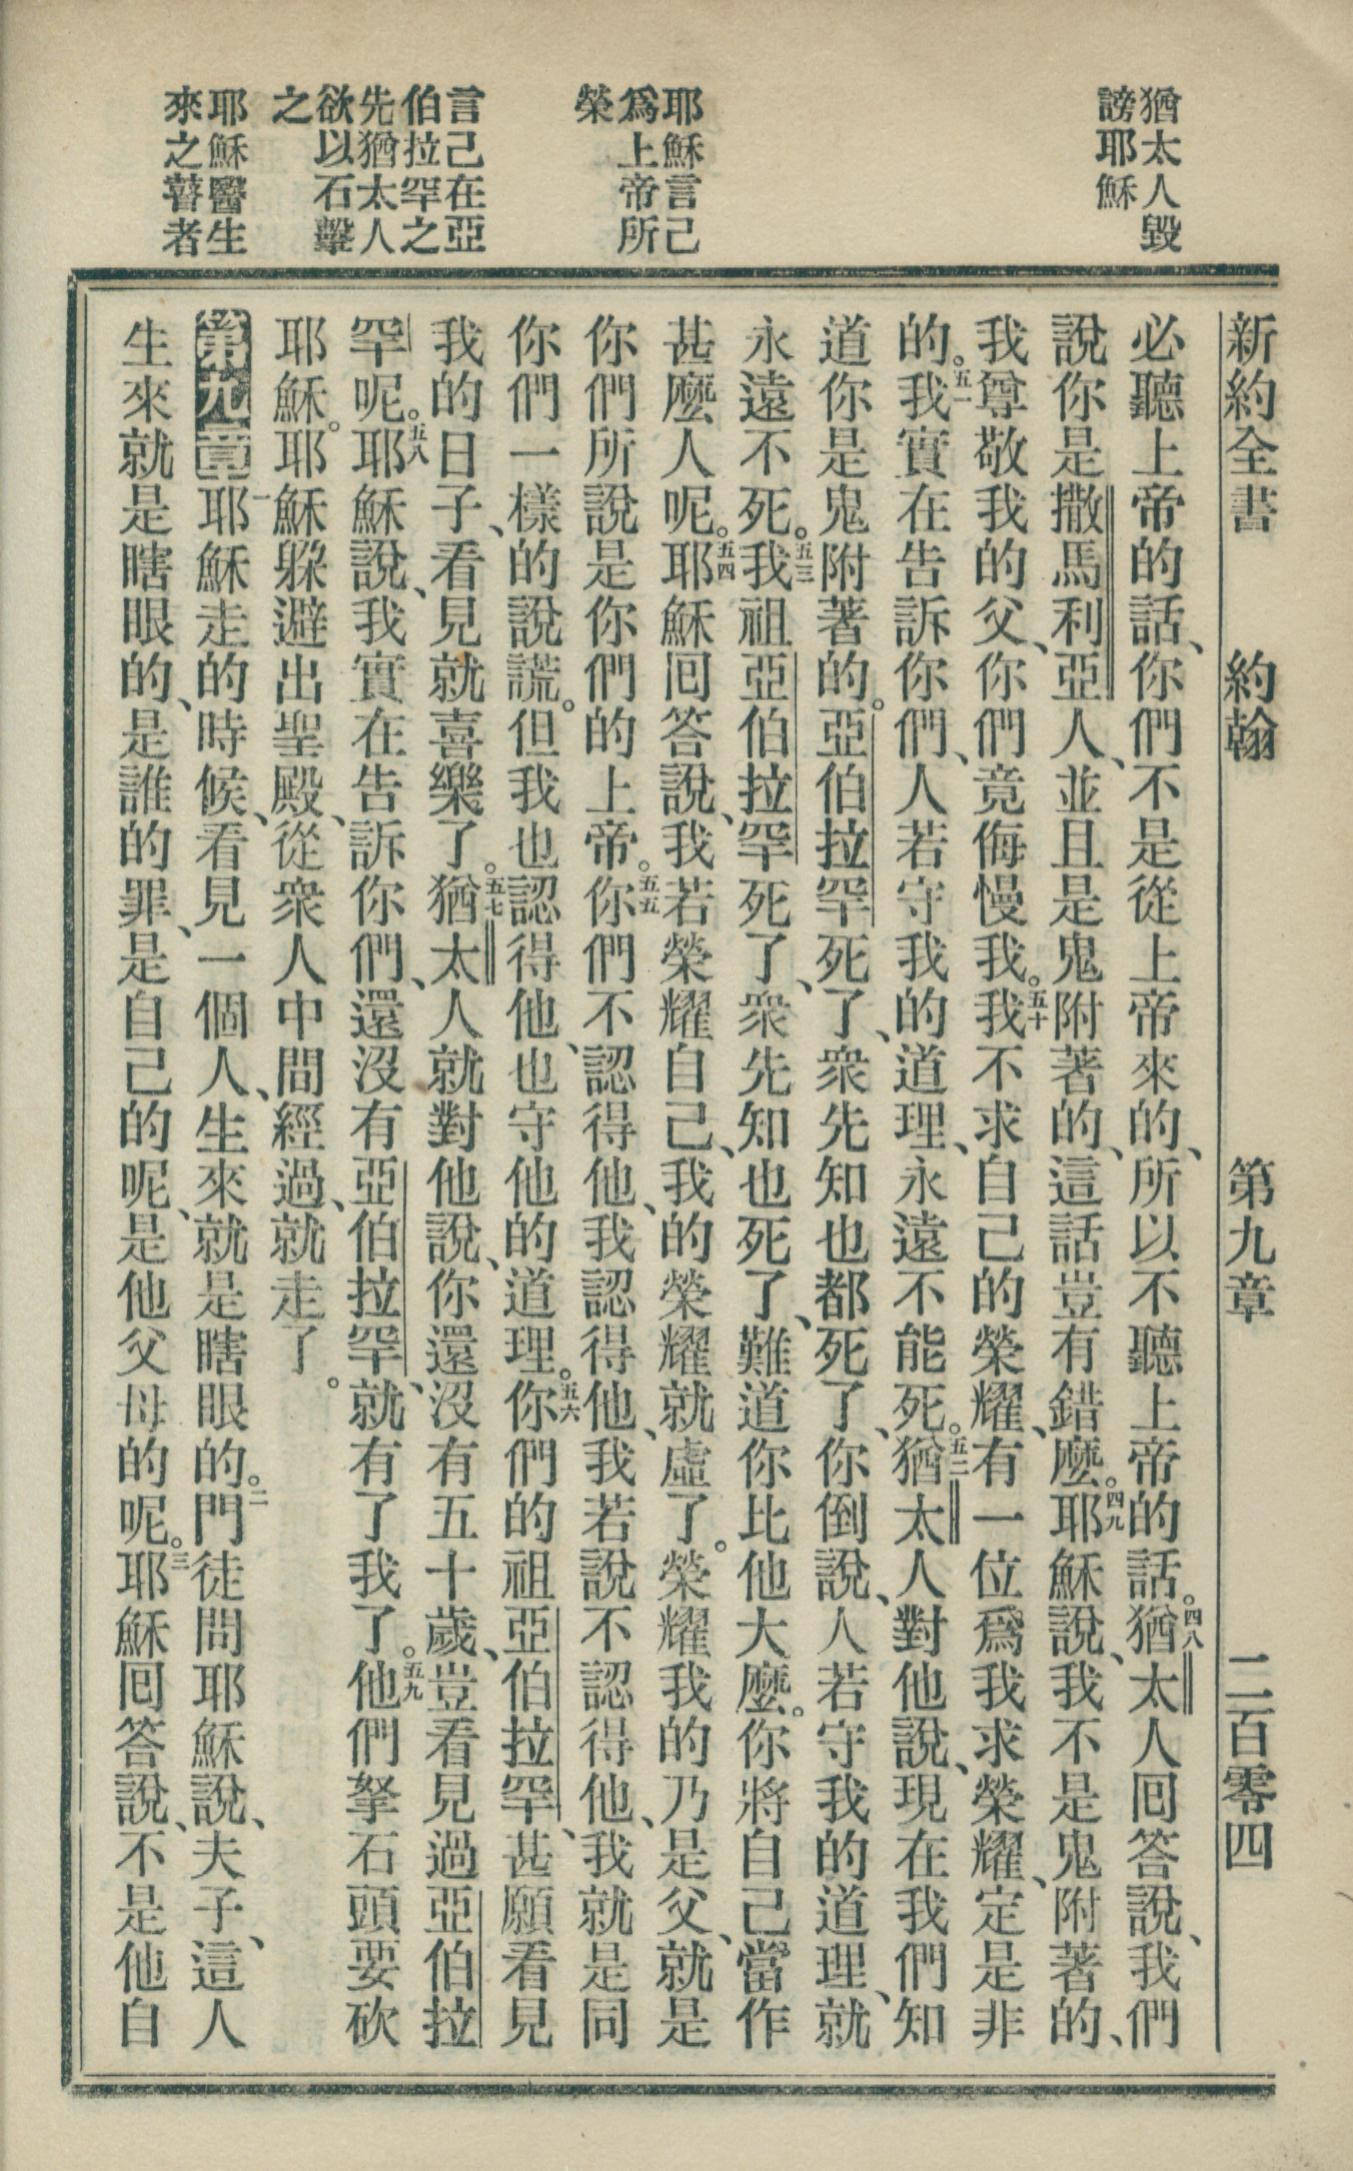 新約全書 約翰 第九章 二百零四
猶太人毀
謗耶穌
耶穌言己
爲上帝所
榮
言己在亞
伯拉罕之
先猶太人
欲以石擊
之
耶穌醫生
來之瞽者
必聽上帝的話、你們不是從上帝來的、所以不聽上帝的話。四八猶太人囘答說、我們
說你是撒馬利亞人、並且是鬼附著的、這話豈有錯麽。四九耶穌說、我不是鬼附著的、
我尊敬我的父、你們竟侮慢我。五十我不求自己的榮耀、有一位爲我求榮耀、定是非
的。五一我實在告訴你們、人若守我的道理、永遠不能死。五二猶太人對他說、現在我們知
道你是鬼附著的。亞伯拉罕死了、衆先知也都死了、你倒說、人若守我的道理、就
永遠不死。五三我祖亞伯拉罕死了、衆先知也死了、難道你比他大麽。你將自己當作
甚麽人呢。五四耶穌囘答說、我若榮耀自己、我的榮耀就虛了。榮耀我的乃是父、就是
你們所說是你們的上帝。五五你們不認得他、我認得他、我若說不認得他、我就是同
你們一樣的說謊。但我也認得他、也守他的道理。五六你們的祖亞伯拉罕、甚願看見
我的日子、看見就喜樂了。五七猶太人就對他說、你還沒有五十歲、豈看見過亞伯拉
罕呢。五八耶穌說、我實在告訴你們、還沒有亞伯拉罕、就有了我了。五九他們拏石頭要砍
耶穌。耶穌躱避出聖殿、從衆人中間經過、就走了。
第九章 一耶穌走的時候、看見一個人、生來就是瞎眼的。二門徒問耶穌說、夫子、這人
生來就是瞎眼的、是誰的罪、是自己的呢、是他父母的呢。三耶穌囘答說、不是他自